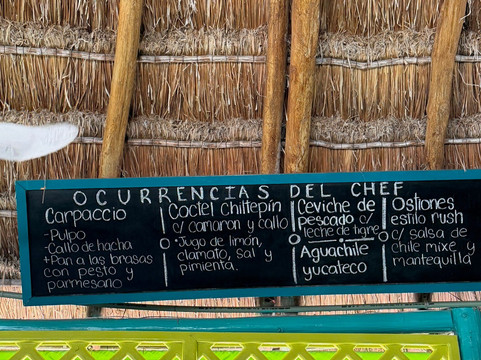 OCURRENCIAS DEL CHEF
Carpaccio
-Pulpo
-Callo de hacha
+Pan a las brasas
con pesto y
parmesano
Coctel Chiltepín
c/ camaron y callo
• Jugo de limón,
clamato, sal y
pimienta.
Ceviche de
pescado c/
leche de tigre
Aguachile
yucateco
Ostiones
estilo rush
c/ salsa de
chile mixe y
mantequilla